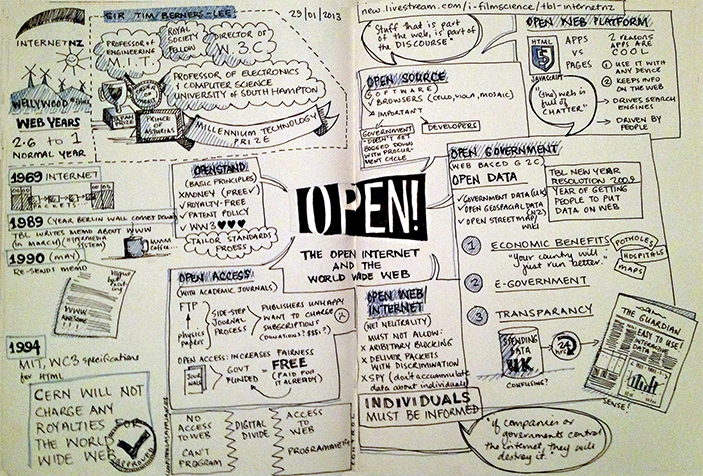 INTERNETNZ
WELLYWOOD
WEB YEARS
2.6 to 1
NORMAL YEAR
SIR TIM BERNERS-LEE
29/01/2013
PROFESSOR of
ENGINEERING
M.I.T.
ROYAL
SOCIETY
FELLOW
DIRECTOR OF
W3C
PROFESSOR OF ELECTRONICS
& COMPUTER SCIENCE
UNIVERSITY OF SOUTH HAMPTON
ORDER
of
MERIT
JAPAN
PRIZE
PRINCE
OF
ASTURIAS
MILLENNIUM TECHNOLOGY
PRIZE
1969 INTERNET
1989 (YEAR BERLIN WALL COMES DOWN)
TBL WRITES MEMO ABOUT WWW
(in MARCH) (HYPERMEDIA
SYSTEM)
MMMM
COFFEE
1990 (MAY)
RE-SENDS MEMO
WWW
AWESOME
1994
MIT, WC3 specifications
for HTML
CERN WILL NOT
CHARGE ANY
ROYALTIES for
THE WORLD
WIDE WEB
APPROVED
OPENSTAND
(BASIC PRINCIPLES)
XMONEY (PREEV)
✓ ROYALTY-FREE
✓ PATENT POLICY
✓ WW3 ♥♥♥
TAILOR STANDARDS
PROESS
OPEN ACCESS
(WITH ACADEMIC JOURNALS)
FTP
physics
papers
SIDE-STEP
JOURNAL
PROCESS
PUBLISHERS UNHAPPY
WANT TO CHARGE
SUBSCRIPTIONS
(DONATIONS? $$$?)
OPEN ACCESS: INCREASES FAIRNESS
JOUR
NALS
GOVT
FUNDED
= FREE
(PAID FOR
IT ALREADY)
NO
ACCESS
TO WEB
CAN'T
PROGRAM
DIGITAL
DIVIDE
ACCESS
TO
WEB
PROGRAMMERS
CONTROL
OPEN!
THE OPEN INTERNET
AND THE
WORLD WIDE WEB
new.livestream.com/i-filmscience/tbl-internetnz
"Stuff that is part of
the web, is part of
the DISCOURSE"
OPEN SOURCE
SOFTWARE
✓ BROWSERS (CELLO, VIOLA, MOSAIC)
IMPORTANT
GOVERNMENT
- DOESN'T GET
BOGGED DOWN
WITH PROCURE-
MENT CYCLE
DEVELOPERS
OPEN WEB PLATFORM
HTML
5
JAVASCRIPT
APPS
VS
PAGES
2 REASONS
APPS ARE
COOL
① USE IT WITH
ANY DEVICE
② KEEPS INFO
ON THE WEB
→ DRIVES SEARCH
ENGINES
→ DRIVEN BY
PEOPLE
"(the) web is
full of
CHATTER"
OPEN GOVERNMENT
(WEB BASED G2C)
OPEN DATA
✓ GOVERNMENT DATA (UK)
✓ OPEN GEOSPATIAL DATA
(NZ)
✓ OPEN STREETMAP/
WIKI
TBL NEW YEAR
RESOLUTION 2009
YEAR OF GETTING
PEOPLE TO PUT
DATA ON WEB
① ECONOMIC BENEFITS
"Your country will
just run better."
POTHOLES
HOSPITALS
MAPS
② E-GOVERNMENT
③ TRANSPARANCY
SPENDING
DATA
UK
CONFUSING?
24
HRS
THE GUARDIAN
EASY TO USE!
INTERACTIVE
DATA
SENSE!
OPEN WEB
INTERNET
(NET NEUTRALITY)
MUST NOT ALLOW:
X ARBITRARY BLOCKING
X DELIVER PACKETS
WITH DISCRIMINATION
X SPY (don't accummulate
data about individuals)
INDIVIDUALS
MUST BE INFORMED
"if companies or
governments control
the internet, they will
destroy it."